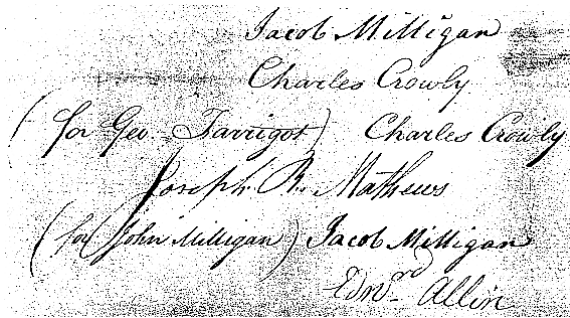 Jacob Milligan
Charles Crowly
(for Geo. Tarrigot) Charles Crowly
Joseph B. Mathews
(for John Milligan) Jacob Milligan
Edwrd Allin